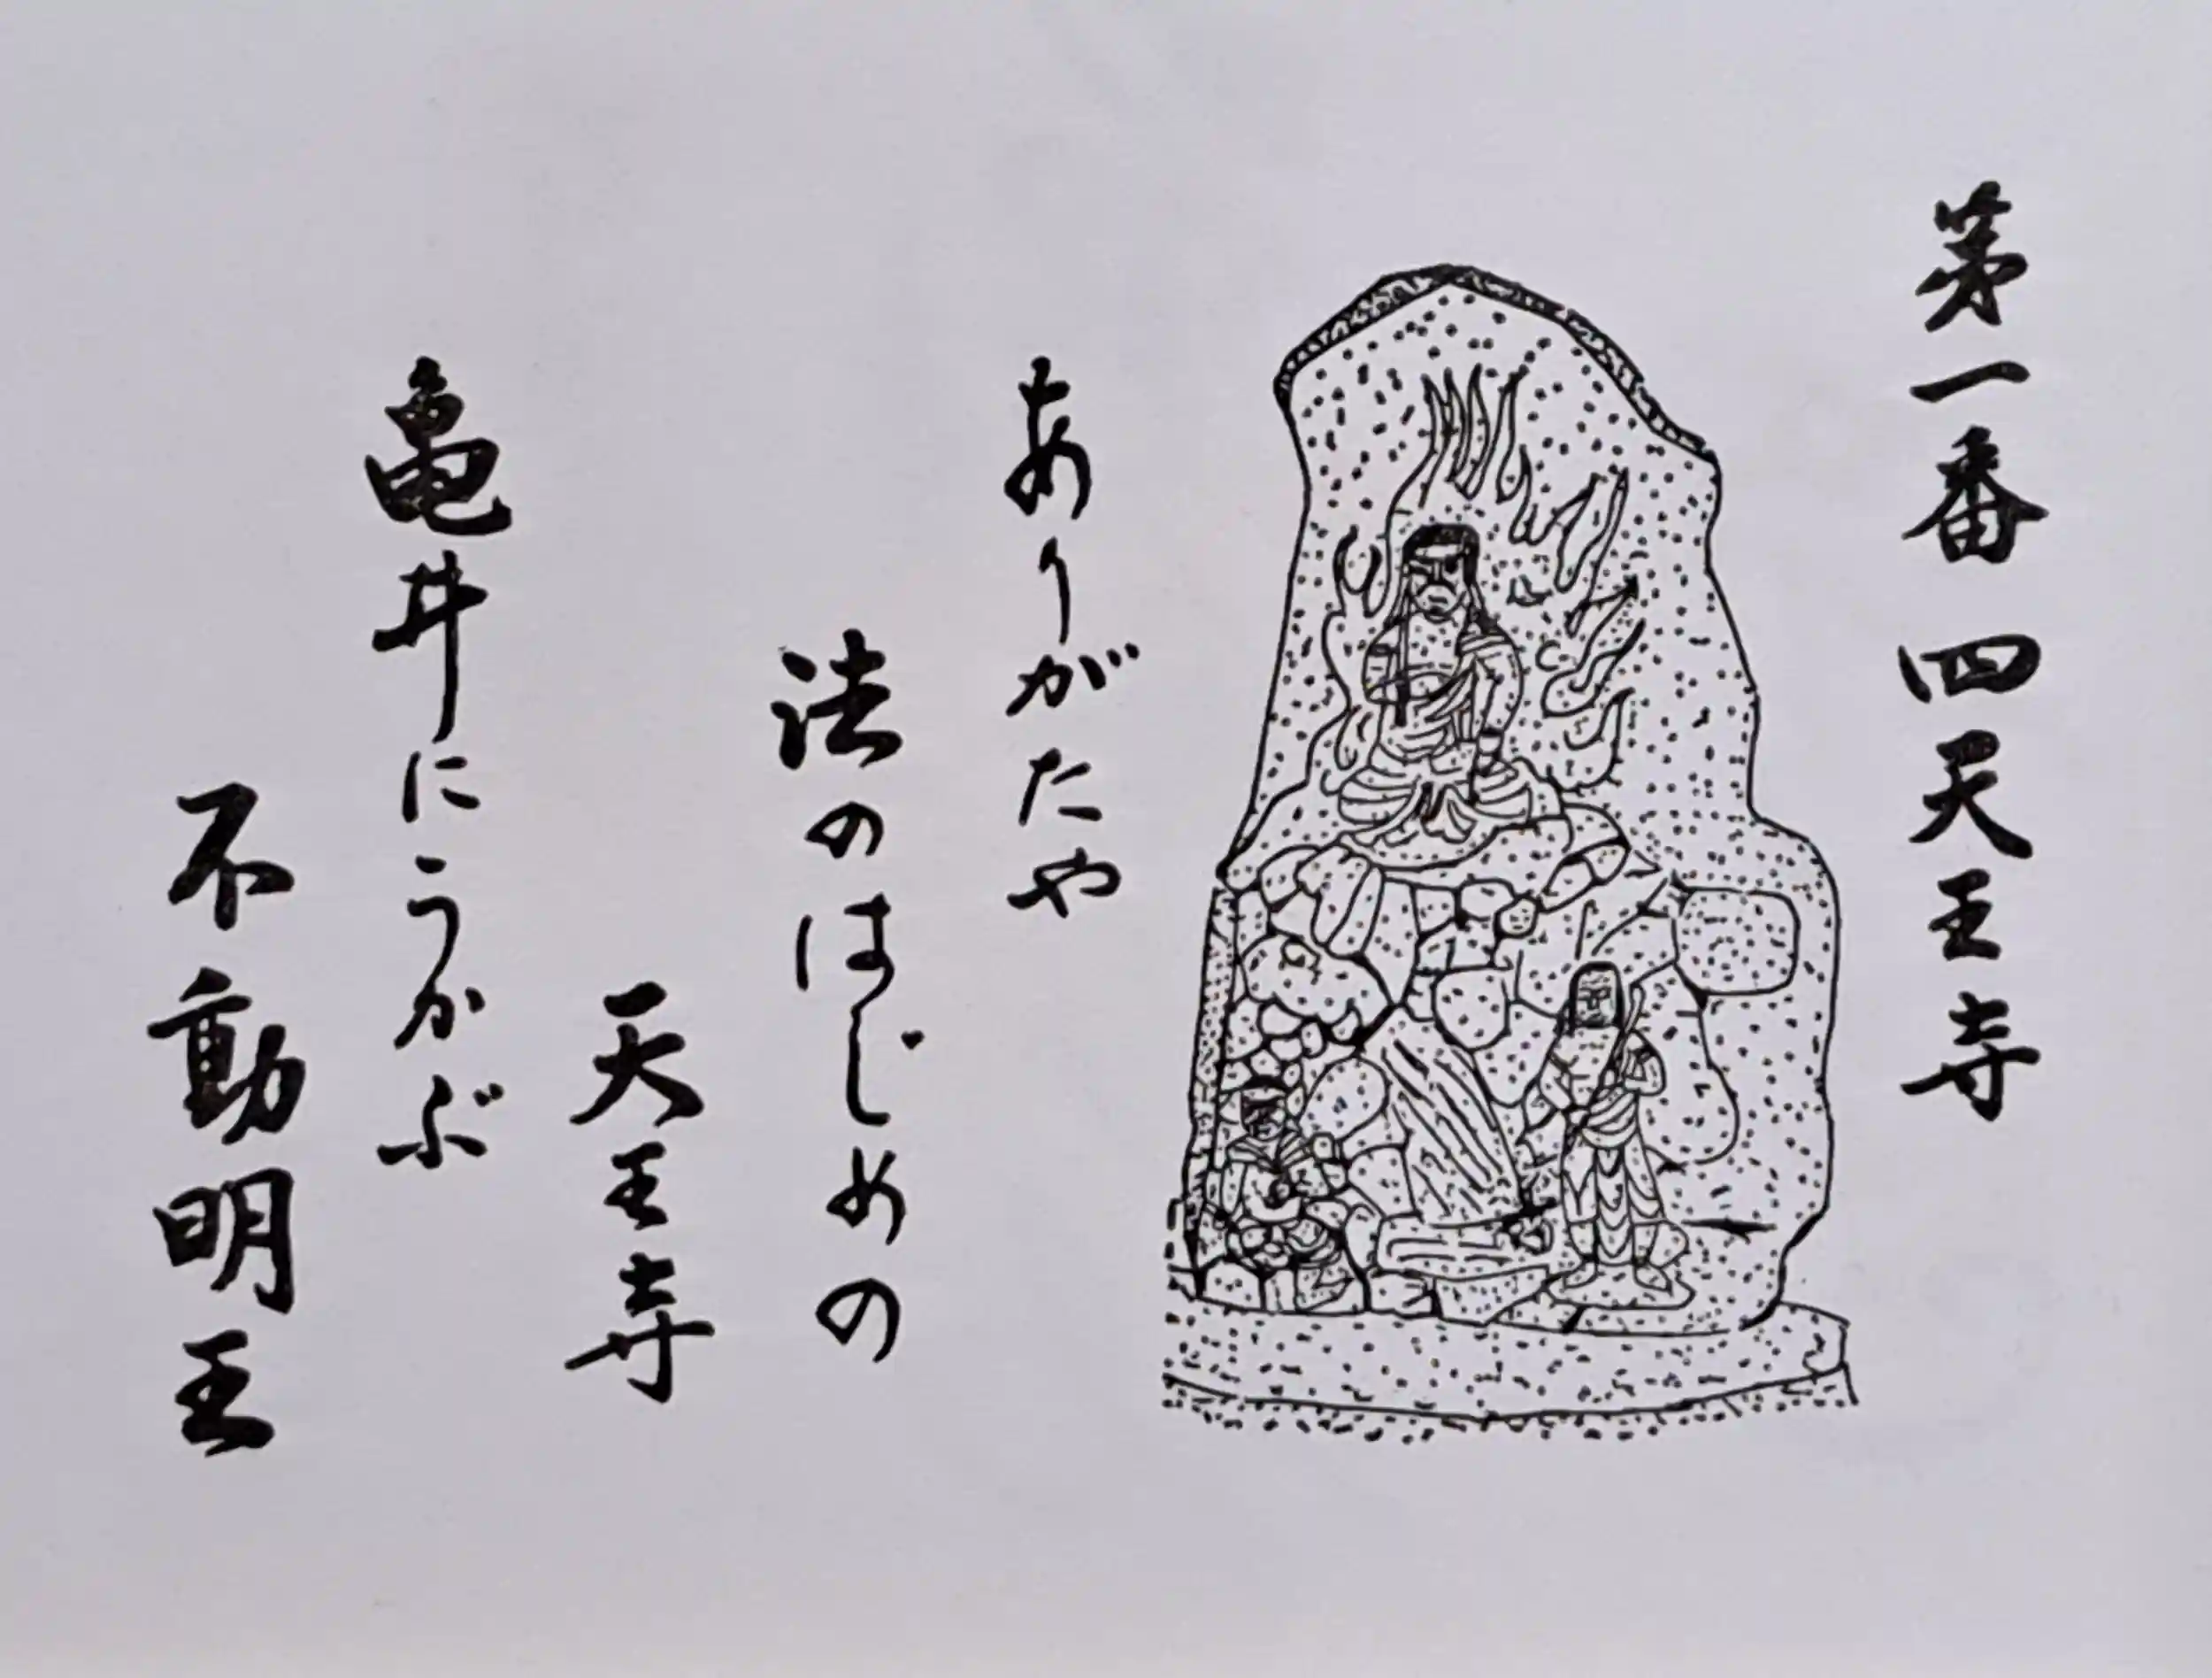 第一番 四天王寺
ありがたや
法のはじめの
天王寺
亀井にうかぶ
不動明王